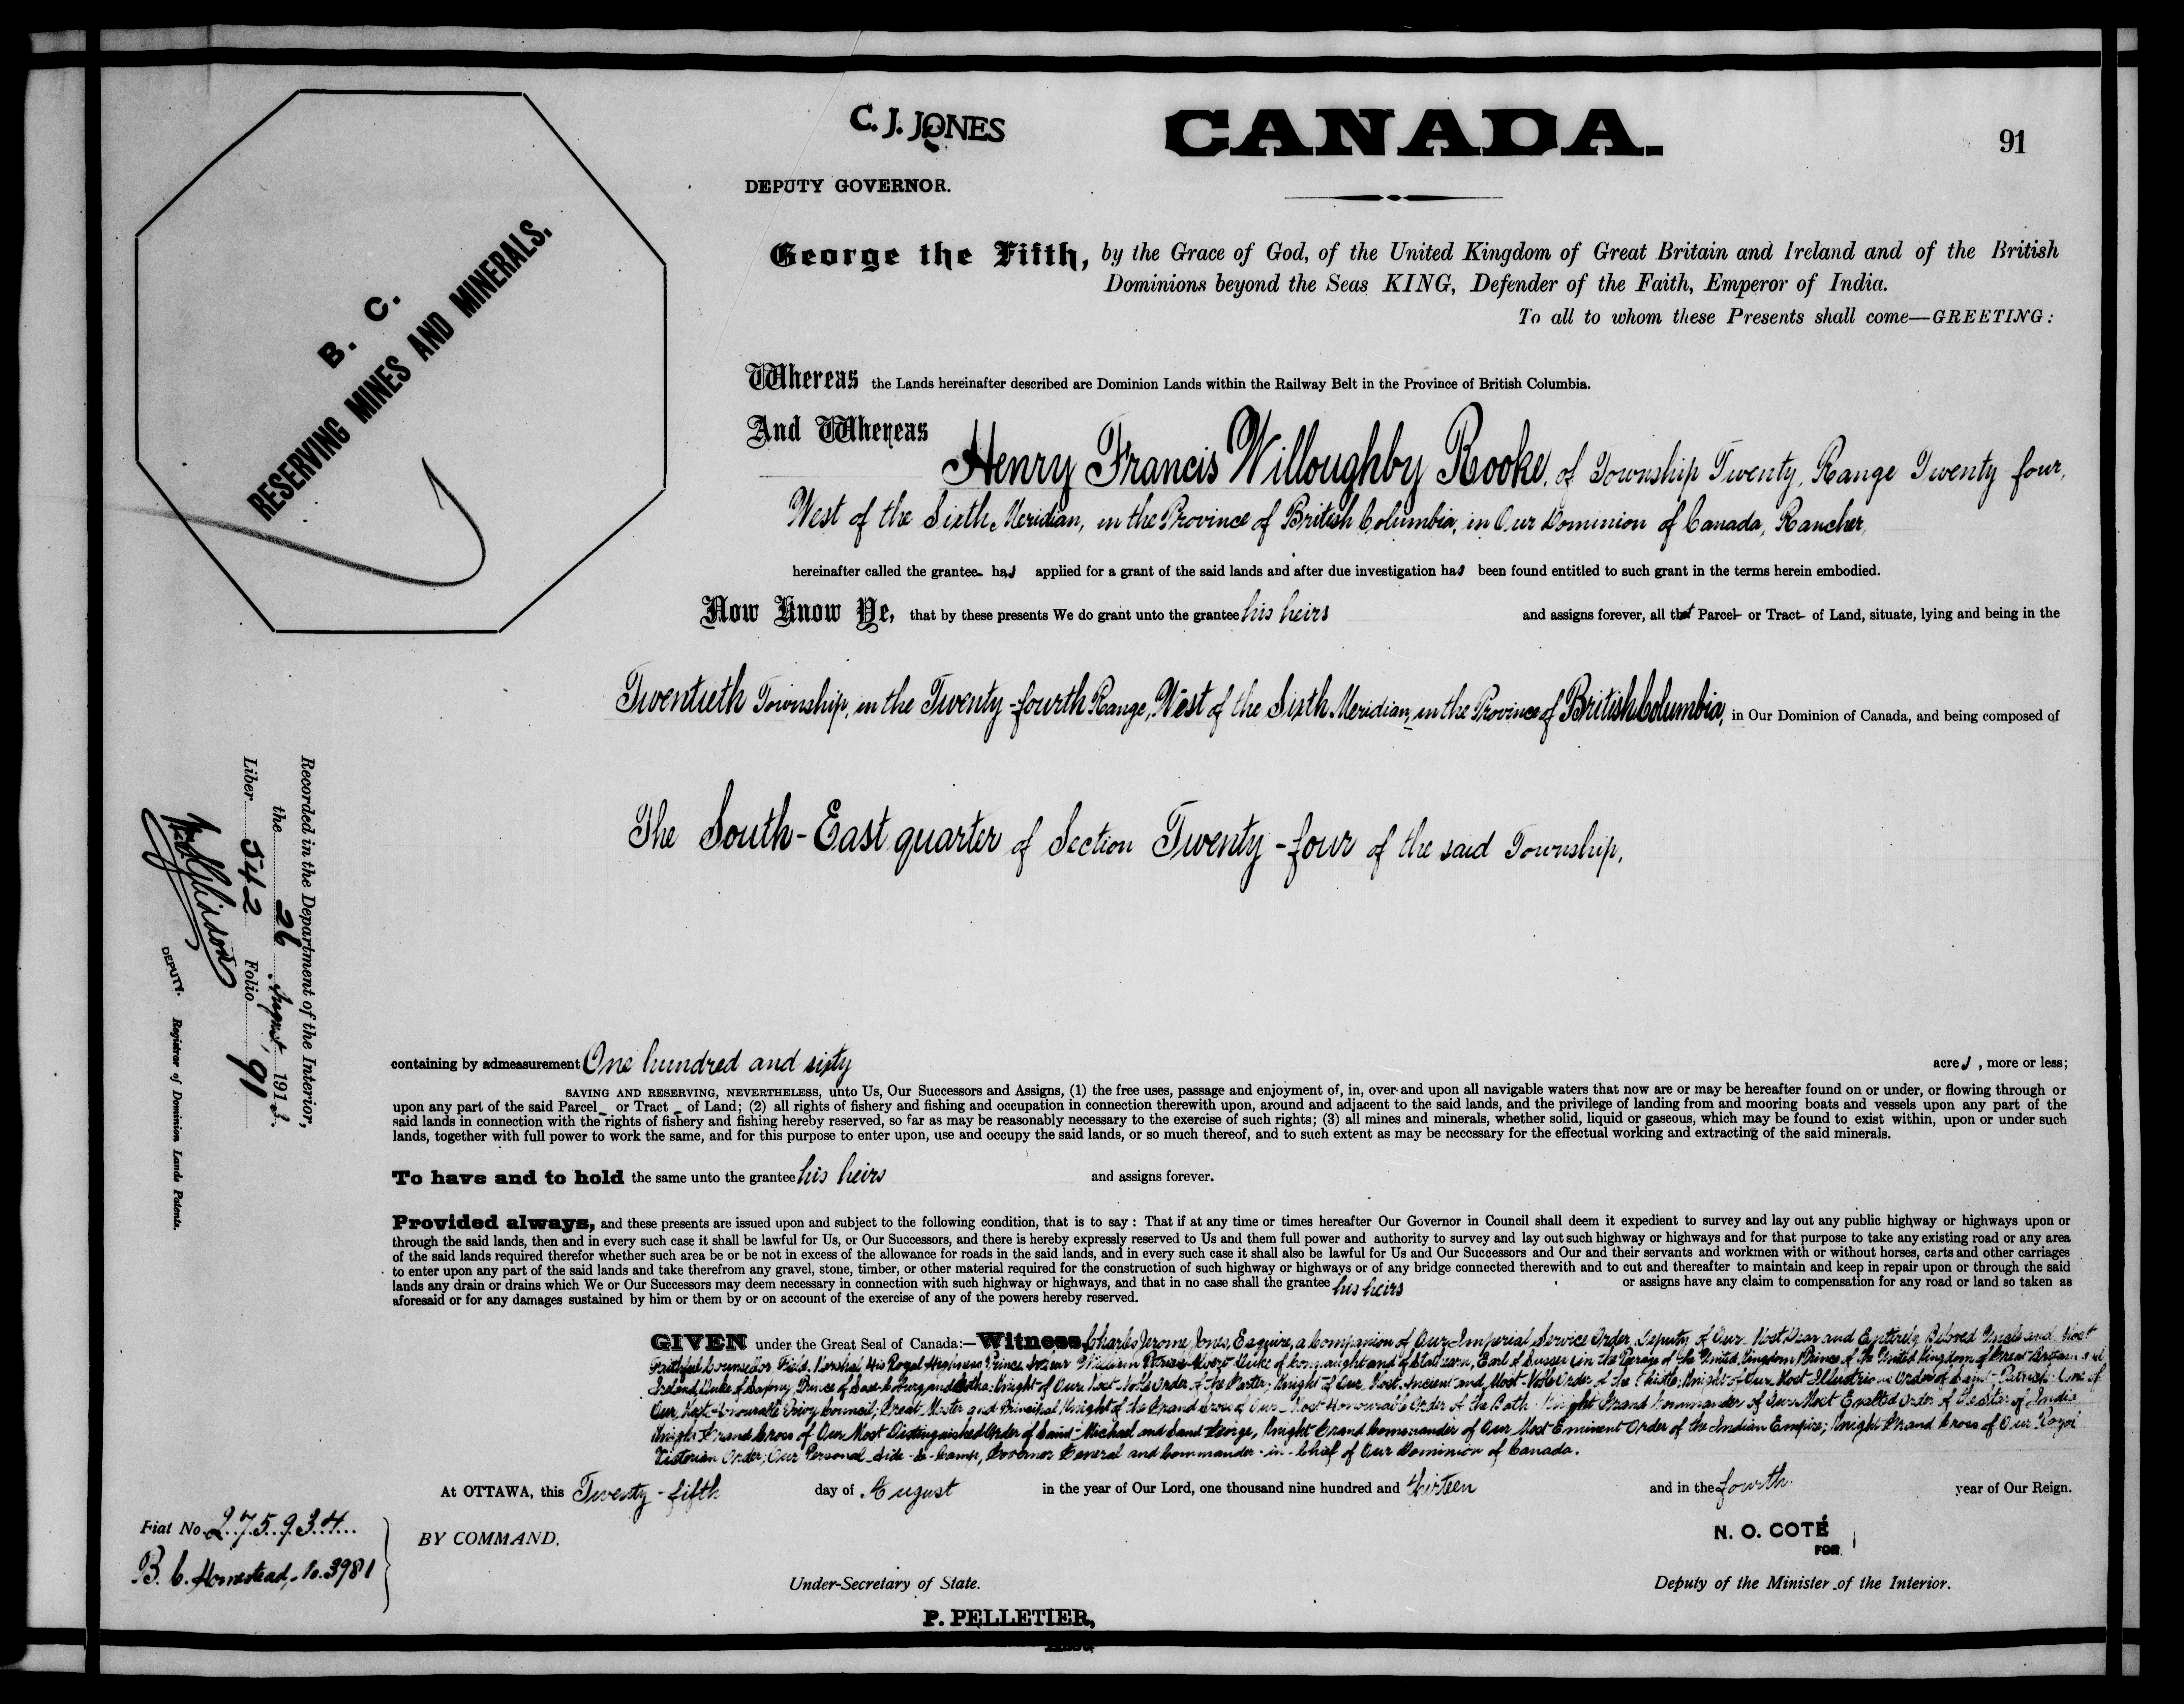 C. J. JONES
CANADA.
91
DEPUTY GOVERNOR.
B. C.
RESERVING MINES AND MINERALS.
George the Fifth, by the Grace of God, of the United Kingdom of Great Britain and Ireland and of the British
Dominions beyond the Seas KING, Defender of the Faith, Emperor of India.
To all to whom these Presents shall come—GREETING:
Whereas the Lands hereinafter described are Dominion Lands within the Railway Belt in the Province of British Columbia.
And Whereas Henry Francis Willoughby Rooke, of Township Twenty, Range Twenty four,
West of the Sixth Meridian, in the Province of British Columbia, in Our Dominion of Canada, Rancher,
hereinafter called the grantee has applied for a grant of the said lands and after due investigation has been found entitled to such grant in the terms herein embodied.
Now Know Ye, that by these presents We do grant unto the grantee his heirs and assigns forever, all that Parcel or Tract of Land, situate, lying and being in the
Twentieth Township, in the Twenty-fourth Range, West of the Sixth Meridian, in the Province of British Columbia, in Our Dominion of Canada, and being composed of
The South-East quarter of Section Twenty-four of the said Township,
Recorded in the Department of the Interior,
the 26 August 1913.
Liber 542 Folio 91
DEPUTY. Registrar of Dominion Lands Patents.
containing by admeasurement One hundred and sixty acres, more or less;
SAVING AND RESERVING, NEVERTHELESS, unto Us, Our Successors and Assigns, (1) the free uses, passage and enjoyment of, in, over and upon all navigable waters that now are or may be hereafter found on or under, or flowing through or
upon any part of the said Parcel or Tract of Land; (2) all rights of fishery and fishing and occupation in connection therewith upon, around and adjacent to the said lands, and the privilege of landing from and mooring boats and vessels upon any part of the
said lands in connection with the rights of fishery and fishing hereby reserved, so far as may be reasonably necessary to the exercise of such rights; (3) all mines and minerals, whether solid, liquid or gaseous, which may be found to exist within, upon or under such
lands, together with full power to work the same, and for this purpose to enter upon, use and occupy the said lands, or so much thereof, and to such extent as may be necessary for the effectual working and extracting of the said minerals.
To have and to hold the same unto the grantee his heirs and assigns forever.
Provided always, and these presents are issued upon and subject to the following condition, that is to say: That if at any time or times hereafter Our Governor in Council shall deem it expedient to survey and lay out any public highway or highways upon or
through the said lands, then and in every such case it shall be lawful for Us, or Our Successors, and there is hereby expressly reserved to Us and them full power and authority to survey and lay out such highway or highways and for that purpose to take any existing road or any area
of the said lands required therefor whether such area be or be not in excess of the allowance for roads in the said lands, and in every such case it shall also be lawful for Us and Our Successors and Our and their servants and workmen with or without horses, carts and other carriages
to enter upon any part of the said lands and take therefrom any gravel, stone, timber, or other material required for the construction of such highway or highways or of any bridge connected therewith and to cut and thereafter to maintain and keep in repair upon or through the said
lands any drain or drains which We or Our Successors may deem necessary in connection with such highway or highways, and that in no case shall the grantee his heirs or assigns have any claim to compensation for any road or land so taken as
aforesaid or for any damages sustained by him or them by or on account of the exercise of any of the powers hereby reserved.
GIVEN under the Great Seal of Canada:—Witness Charles Jerome Jones, Esquire, a Companion of Our Imperial Service Order, Deputy of Our Most Dear and Entirely Beloved Uncle and Most
Faithful Counsellor Field Marshal His Royal Highness Prince Arthur William Patrick Albert Duke of Connaught and of Strathearn, Earl of Sussex (in the Peerage of the United Kingdom) Prince of the United Kingdom of Great Britain and
Ireland, Duke of Saxony, Prince of Saxe-Coburg and Gotha; Knight of Our Most Noble Order of the Garter; Knight of Our Most Ancient and Most Noble Order of the Thistle; Knight of Our Most Illustrious Order of Saint Patrick; One of
Our Most Honourable Privy Council; Great Master and Principal Knight of the Grand Cross of Our Most Honourable Order of the Bath; Knight Grand Commander of Our Most Exalted Order of the Star of India
Knight Grand Cross of Our Most Distinguished Order of Saint Michael and Saint George, Knight Grand Commander of Our Most Eminent Order of the Indian Empire; Knight Grand Cross of Our Royal
Victorian Order; Our Personal Aide-de-Camp, Governor General and Commander-in-Chief of Our Dominion of Canada.
At OTTAWA, this Twenty-fifth day of August in the year of Our Lord, one thousand nine hundred and thirteen and in the fourth year of Our Reign.
Fiat No. 275934
B. C. Homestead, No. 3981
BY COMMAND.
N. O. COTÉ
FOR
Under-Secretary of State.
Deputy of the Minister of the Interior.
P. PELLETIER,